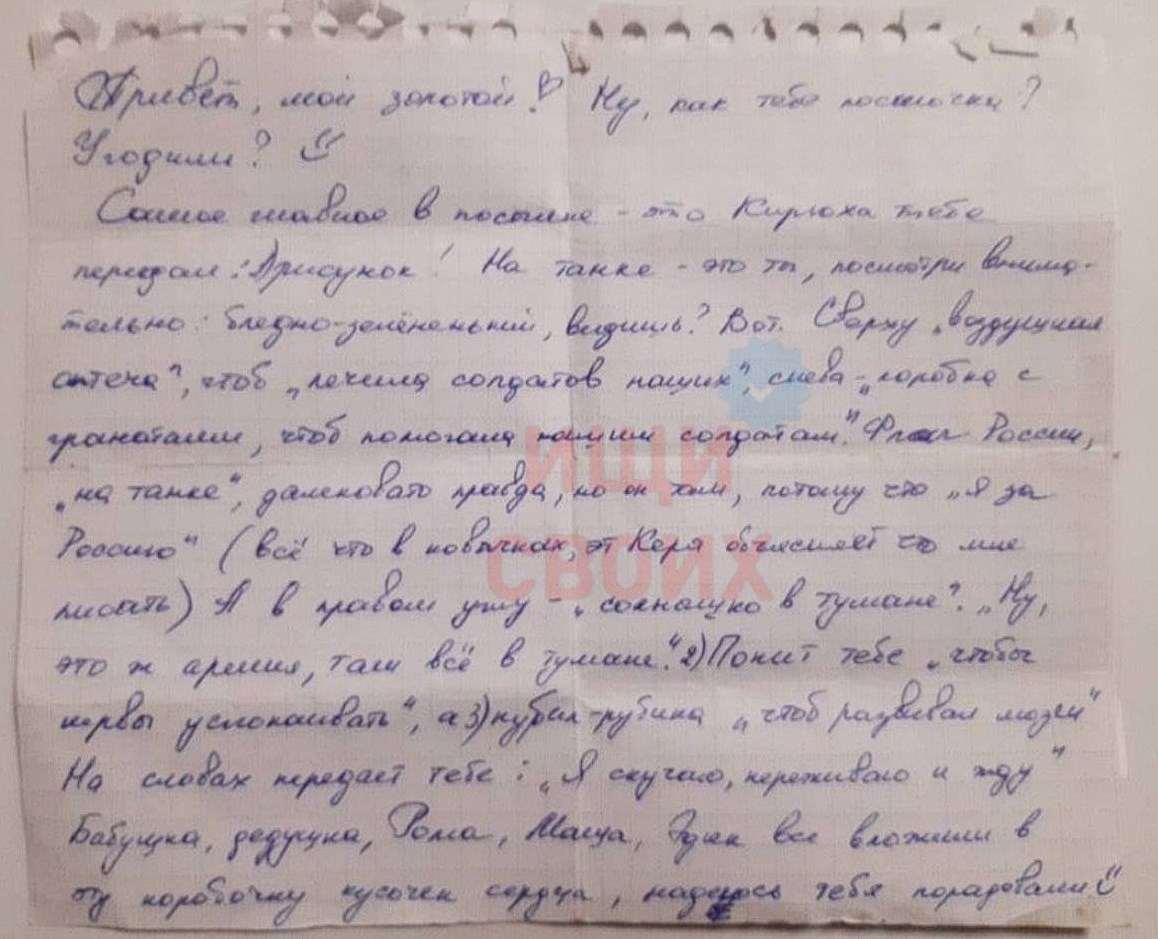 Привет, мой золотой! Ну, как тебе посылочка?
Угодили?
Самое главное в посылке - это Кирюха тебе
передал: 1) рисунок! На танке - это ты, посмотри внима-
тельно: бледно-зелёненький, видишь? Вот. Сверху „воздушная
аптека", чтоб „лечила солдатов наших", слева - „коробка с
гранатами, чтоб помогала нашим солдатам". Флаг России,
„на танке", далековато правда, но он там, потому что „я за
Россию" (всё что в ковычках, эт Керя объясняет что мне
писать) А в правом углу - „солнышко в тумане". „Ну,
это ж армия, там всё в тумане." 2) Попит тебе „чтобы
нервы успокаивать", а 3) кубик-рубика „чтоб развивал мозги"
На словах передаёт тебе: „Я скучаю, переживаю и жду"
Бабушка, дедушка, Рома, Маша, Эдик все вложили в
эту коробочку кусочек сердца, надеюсь тебя порадовали
ИЩИ
СВОИХ